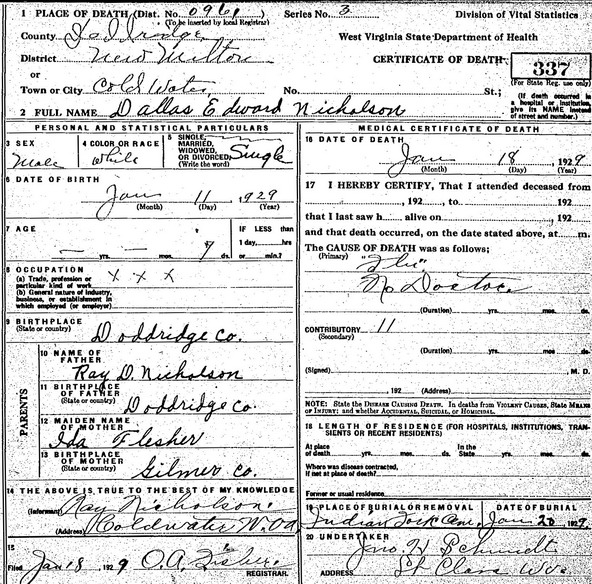 1 PLACE OF DEATH (Dist. No. 0961 Series No. 3 Division of Vital Statistics
(To be inserted by local Registrar)
County Doddridge West Virginia State Department of Health
District New Milton CERTIFICATE OF DEATH 337
or (For State Reg. use only)
Town or City Cold Water No. St.; (If death occurred in a hospital or institution, give its NAME instead of street and number.)
2 FULL NAME Dallas Edward Nicholson
PERSONAL AND STATISTICAL PARTICULARS
3 SEX Male
4 COLOR OR RACE White
5 SINGLE, MARRIED, WIDOWED, OR DIVORCED (Write the word) Single
6 DATE OF BIRTH
Jan 11, 1929
(Month) (Day) (Year)
7 AGE IF LESS than
— yrs. — mos. 7 ds. 1 day, hrs or min.?
8 OCCUPATION
(a) Trade, profession or particular kind of work x x x
(b) General nature of industry, business, or establishment in which employed (or employer)
9 BIRTHPLACE
(State or country) Doddridge Co.
PARENTS
10 NAME OF FATHER
Ray D. Nicholson
11 BIRTHPLACE OF FATHER
(State or country) Doddridge Co.
12 MAIDEN NAME OF MOTHER
Ida Flesher
13 BIRTHPLACE OF MOTHER
(State or country) Gilmer Co.
14 THE ABOVE IS TRUE TO THE BEST OF MY KNOWLEDGE
(Informant) Ray Nicholson
(Address) Coldwater W.Va
15
Filed Jan 18, 1929 O.A. Fisher
REGISTRAR.
MEDICAL CERTIFICATE OF DEATH
16 DATE OF DEATH
Jan 18 1929
(Month) (Day) (Year)
17 I HEREBY CERTIFY, That I attended deceased from
, 192 , to , 192
that I last saw h alive on , 192
and that death occurred, on the date stated above, at m.
The CAUSE OF DEATH was as follows;
(Primary) "Flu"
No Doctor
(Duration) yrs. mos. ds.
CONTRIBUTORY 11
(Secondary)
(Duration) yrs. mos. ds.
(Signed) M. D.
192 (Address)
NOTE: State the DISEASE CAUSING DEATH. In deaths from VIOLENT CAUSES, State MEANS OF INJURY; and whether ACCIDENTAL, SUICIDAL, or HOMICIDAL.
18 LENGTH OF RESIDENCE (FOR HOSPITALS, INSTITUTIONS, TRANSIENTS OR RECENT RESIDENTS)
At place of death yrs. mos. ds. In the State yrs. mos. ds.
Where was disease contracted, if not at place of death?
Former or usual residence
19 PLACE OF BURIAL OR REMOVAL DATE OF BURIAL
Indian Fork Cem. Jan 20 1929
20 UNDERTAKER
Jno. H Schmidt
ADDRESS St Clara Wva